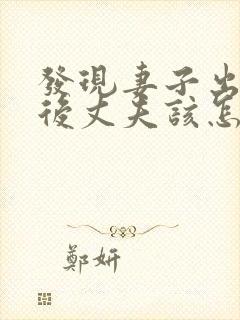 發現妻子出
後丈夫該怎
鄭妍